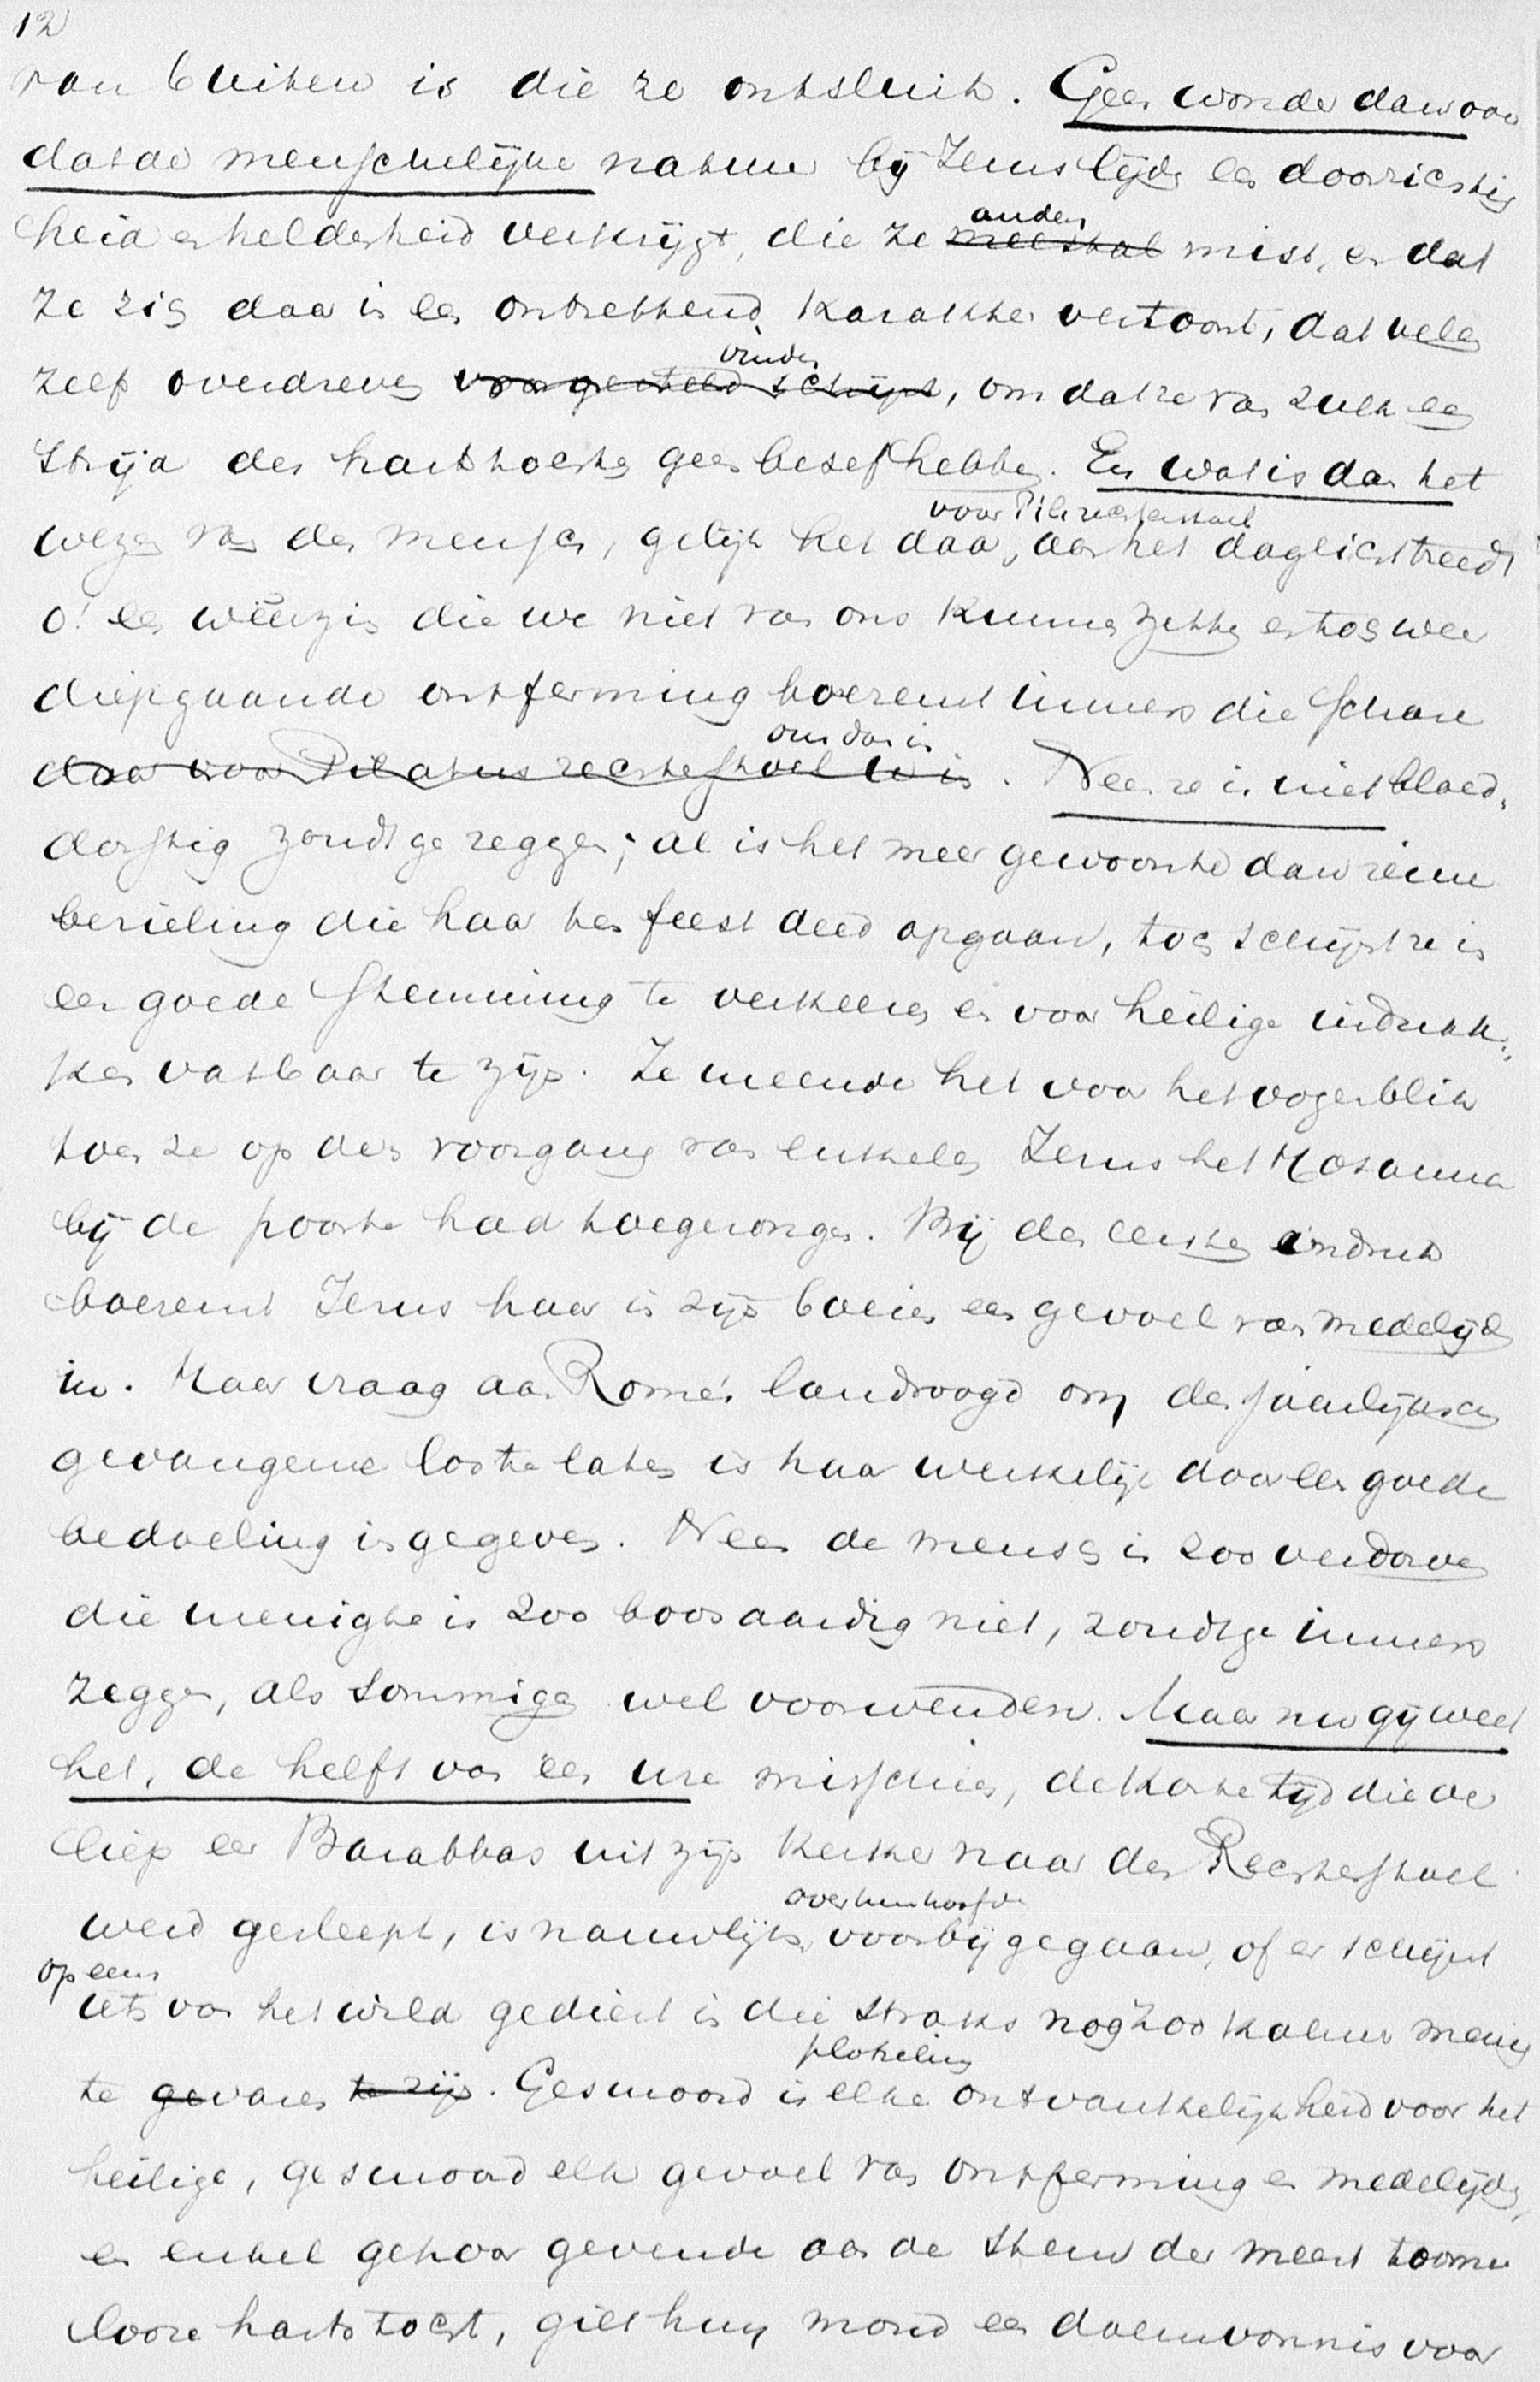 12
van buiten is die ze ontsluit. Geen wonder dan ook
dat de menschelijke natuur bij Jezus lijden een doorzichtig
heid en helderheid verkrijgt, die ze anders meestal mist, en dat
ze zich daar in een ontzettend karakter vertoont, dat velen
zelf overdreven vinden voorgesteld schijnt, omdat ze van zulk een
strijd der hartstochten geen besef hebben. En wat is dan het
wezen van den mensch, gelijk het daar, voor Pil. rechterstoel aan het daglicht treedt
o! een weêrzin die we niet van ons kunnen zetten en toch weer
diepgaande ontferming boezemt immers die schare
daar voor Pilatus rechterstoel u in ons dan in. Neen ze is niet bloed-
dorstig zoudt ge zeggen; al is het meer gewoonte dan reine
bezieling die haar ten feest deed opgaan, toch schijnt ze in
een goede stemming te verkeeren en voor heilige indruk-
ken vatbaar te zijn. Ze meende het voor het oogenblik
toen ze op den voorgang van enkelen Jezus het Hosanna
bij de poorte had toegezongen. Bij den eersten indruk
boezemt Jezus haar in zijn boeien een gevoel van medelijden
in. Haar vraag aan Rome's landvoogd om den jaarlijkschen
gevangene los te laten is haar werkelijk door een goede
bedoeling ingegeven. Neen de mensch is zoo verdorven
die menigte is zoo boosaardig niet, zoudt ge immers
zeggen, als sommigen wel voorwenden. Maar nu gij weet
het, de helft van een ure misschien, de korte tijd die ver
liep eer Barabbas uit zijn kerker naar den Rechterstoel
werd gesleept, is nauwlijks over hun hoofden voorbijgegaan, of er schijnt
opeens iets van het wild gediert in die straks nog zoo kalme menig
te gevaren te zijn. Gesmoord is plotseling elke ontvankelijkheid voor het
heilige, gesmoord elk gevoel van ontferming en medelijden,
en enkel gehoor gevende aan de stem der meest toome
looze hartstocht, gilt hun mond een doemvonnis voor